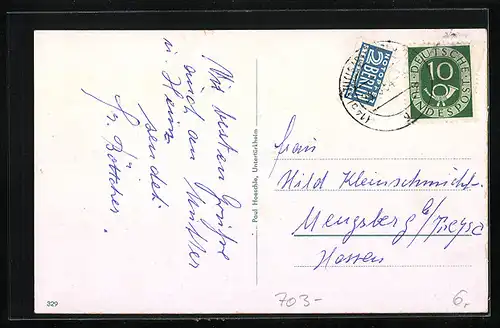 Mit besten Grüßen
auch an Mutter
u. Heinz
sendet
Fr. Böttcher.
Paul Hoeschle, Untertürkheim
329
NOTOPFER
2 BERLIN
STEUERMARKE
DEUTSCHE
10
BUNDESPOST
Frau
Hild Kleinschmidt
Mengsberg b/Treysa
Hessen
703-
6,-